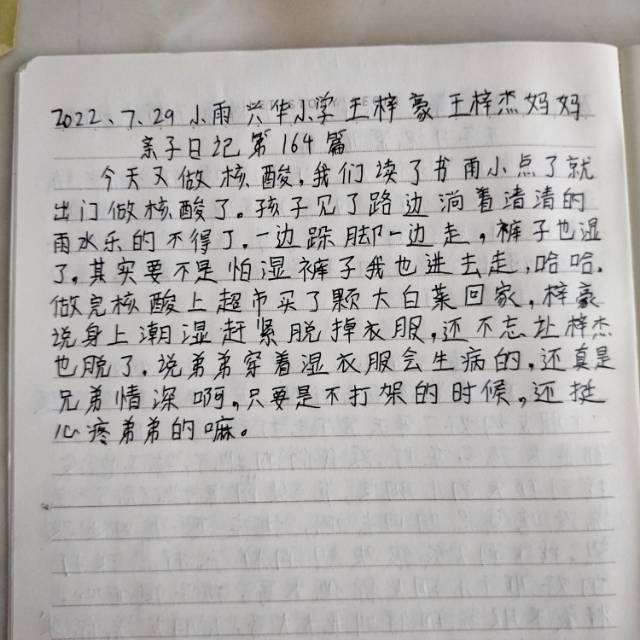 2022、7.29 小雨 兴华小学 王梓豪 王梓杰妈妈
亲子日记第164篇
今天又做核酸,我们读了书雨小点了就
出门做核酸了。孩子见了路边淌着清清的
雨水乐的不得了.一边跺脚一边走,裤子也湿
了,其实要不是怕湿裤子我也进去走,哈哈.
做完核酸上超市买了颗大白菜回家,梓豪
说身上潮湿赶紧脱掉衣服,还不忘让梓杰
也脱了.说弟弟穿着湿衣服会生病的,还真是
兄弟情深啊,只要是不打架的时候,还挺
心疼弟弟的嘛。